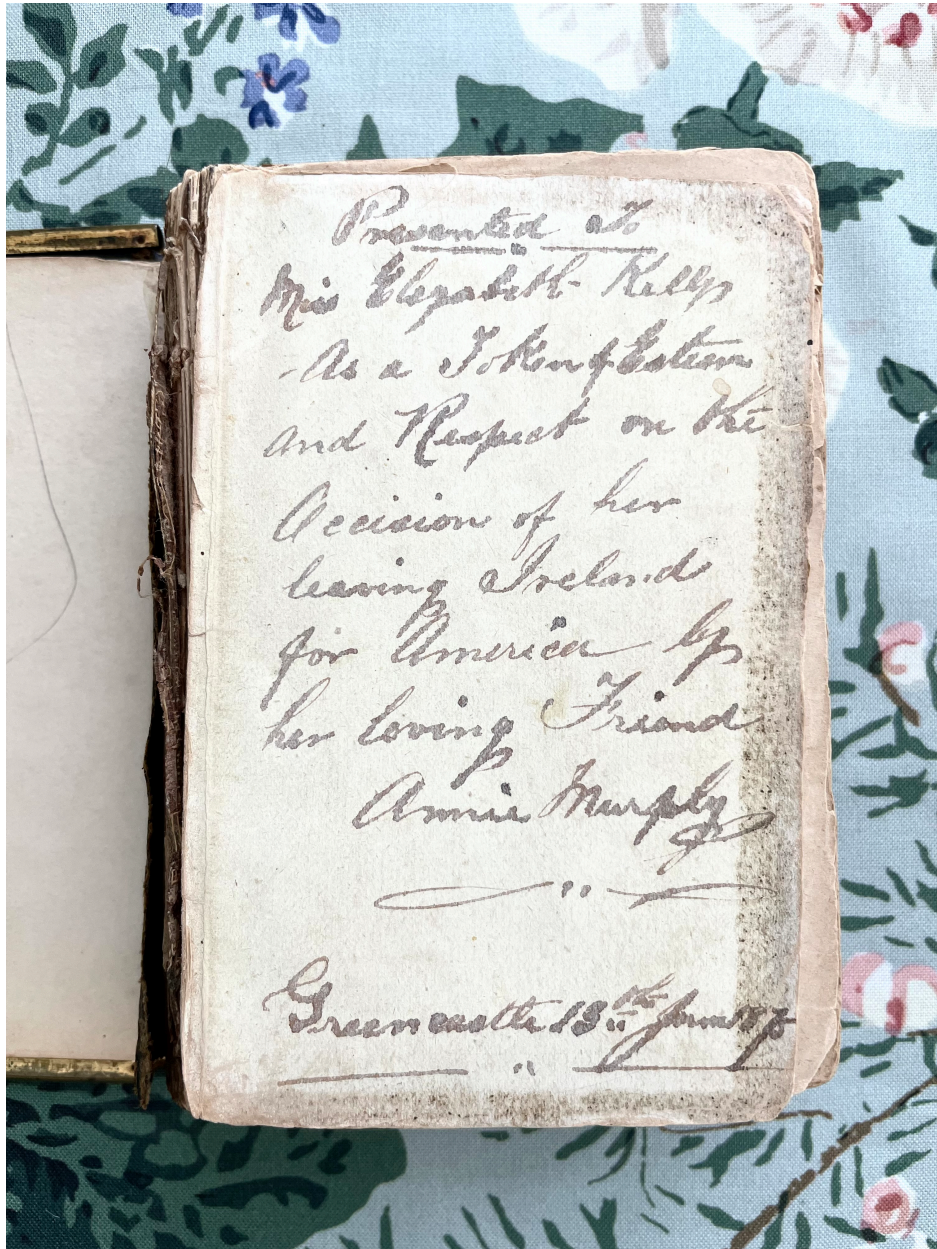 Presented To
Miss Elizabeth Kelly
- As a Token of Esteem
and Respect on the
Occision of her
leaving Ireland
for America by
her loving Friend
Annie Murphy
Greencastle 13th June